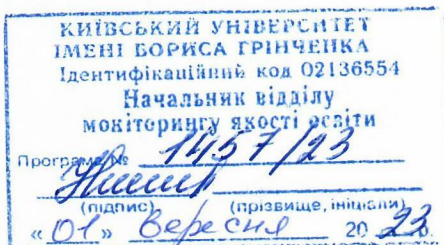 КИЇВСЬКИЙ УНІВЕРСИТЕТ
ІМЕНІ БОРИСА ГРІНЧЕНКА
Ідентифікаційний код 02136554
Начальник відділу
моніторингу якості освіти
Програма № 1457/23
(підпис) (прізвище, ініціали)
«01» вересня 2023 р.